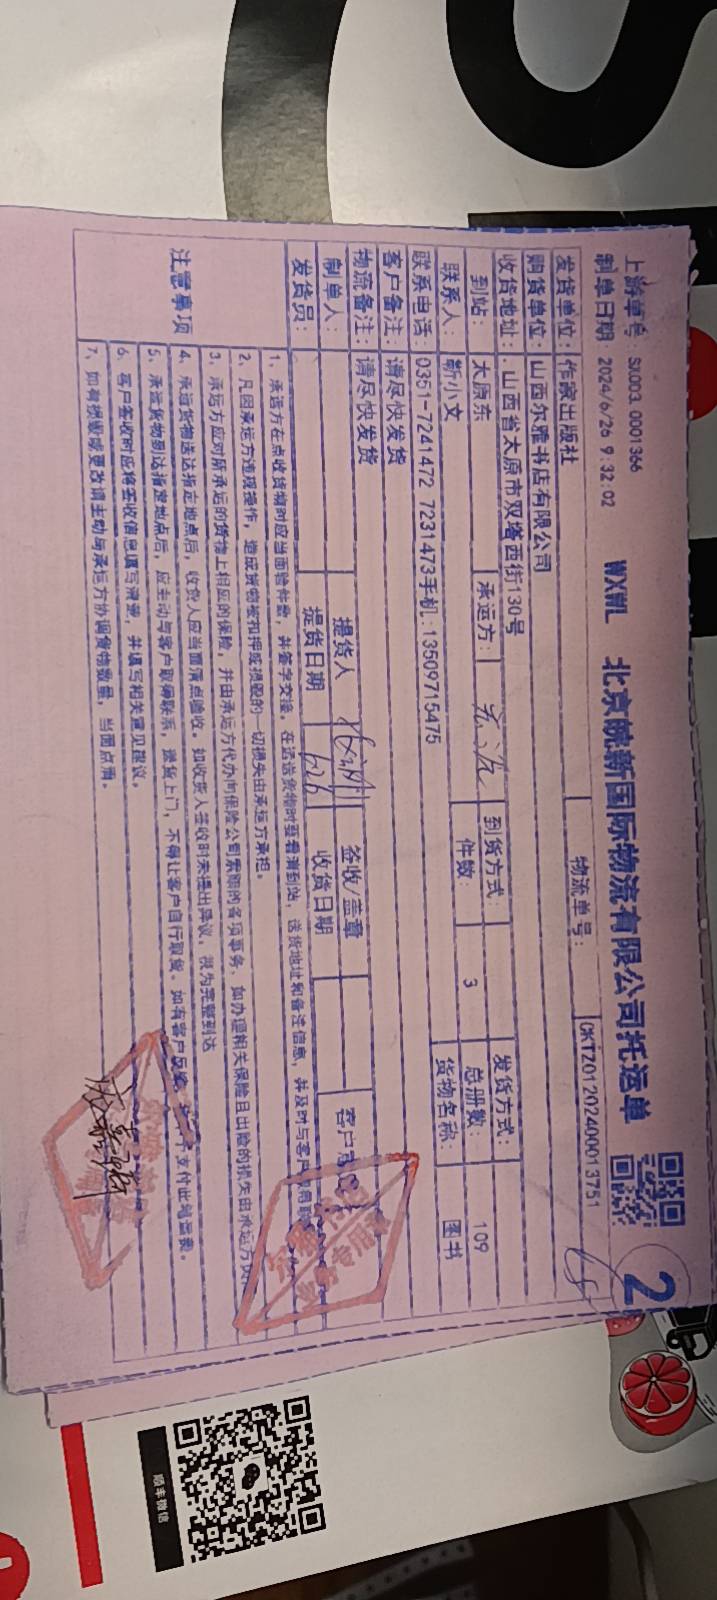 上游单号 SX003.0001366
WXWL 北京皖新国际物流有限公司托运单
2
制单日期 2024/6/26 9:32:02
物流单号: CKTZ0120240013751
发货单位: 作家出版社
购货单位: 山西尔雅书店有限公司
收货地址: .山西省太原市双塔西街130号
到站: 太原东 承运方: 到货方式: 发货方式:
联系人: 靳小文 件数: 3 总册数: 109
联系电话: 0351-7241472 7231473手机:13509715475 货物名称: 图书
客户备注: 请尽快发货
物流备注: 请尽快发货
制单人: 提货人 签收/盖章 客户意
发货员: 提货日期 6.26 收货日期
注意事项
1、承运方在点收货物时应当面验件数,并签字交接。在运送货物时查看清到站、送货地址和备注信息,并及时与客户
2、凡因承运方违规操作,造成货物被扣押或损毁的一切损失由承运方承担。
3、承运方应对所承运的货物上相应的保险,并由承运方代办向保险公司索赔的各项事务,如办理相关保险且出险的损失由承运方
4、承运货物送达指定地点后,收货人应当面清点验收。如收货人签收时未提出异议,视为完整到达
5、承运货物到达指定地点后,应主动与客户取得联系,送货上门,不得让客户自行取货。如有客户反馈, 支付此笔运费。
6、客户签收时应将签收信息填写清楚,并填写相关意见建议。
7、如有损毁或更改请主动与承运方协调货物数量,当面点清。
顺丰微信